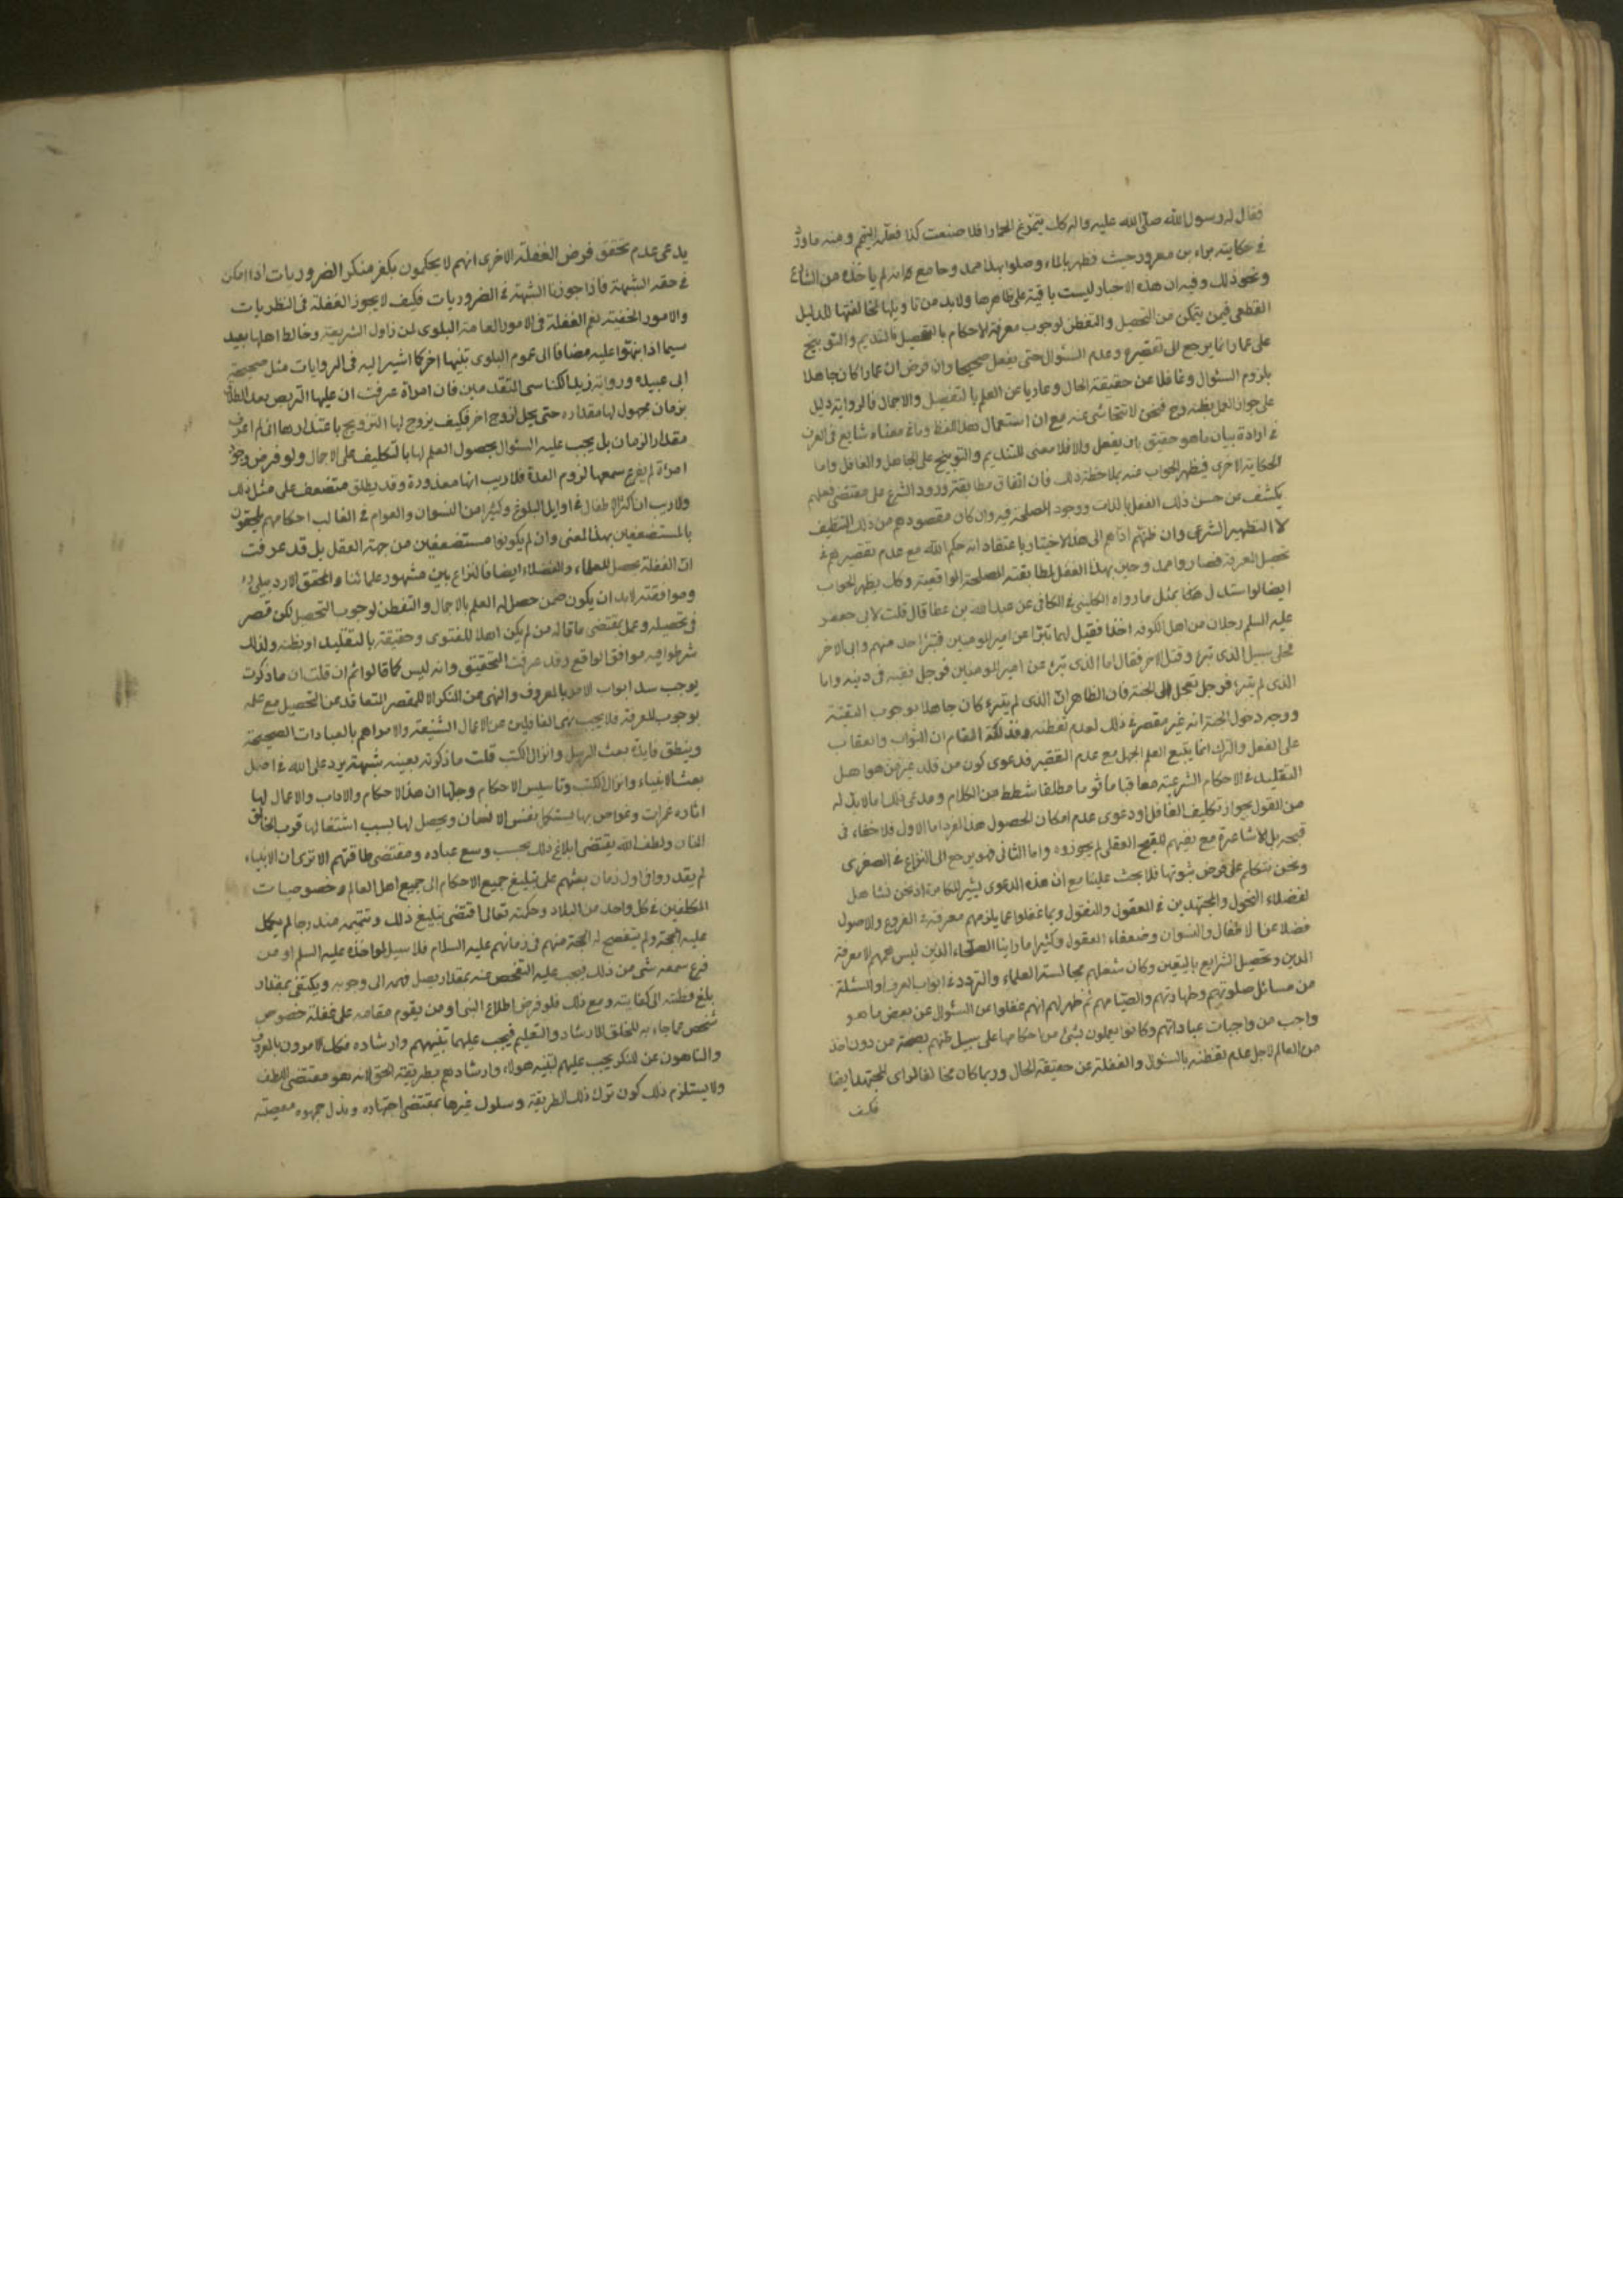 فقال له رسول الله صلى الله عليه واله كك يتمرغ الحمار افلا صنعت كذا فعلمه التيمم ومنه ما ورد
في حكاية براء بن معرور حيث تطهر بالماء وصلوا بهذا حمد وجامع كانه لم ياخذه من الشارع
ونحو ذلك وفيه ان هذه الاخبار ليست باقية على ظاهرها ولابد من تاويلها لمخالفتها للدليل
القطعي فيمن يتمكن من التحصيل والتفطن لوجوب معرفة الاحكام بالتفصيل فالتنديم والتوبيخ
على عمار انما يرجع الى تقصيره وعدم السئوال حتى يفعل صحيحا وان فرض ان عمارا كان جاهلا
بلزوم السئوال وغافلا عن حقيقة الحال وعاريا عن العلم بالتفصيل والاجمال فالرواية دليل
على جواز العمل بظنه وح فنحن لا نتحاشى عنه مع ان استعمال هذا اللفظ وما في معناه شايع في العرف
في ارادة بيان ما هو حقيق بان يفعل والا فلا معنى للتنديم والتوبيخ على الجاهل والغافل واما
الحكاية الاخرى فيظهر الجواب عنه بملاحظة ذلك فان اتفاق مطابقة ورود الشرع على مقتضى فعلهم
يكشف عن حسن ذلك الفعل بالذات ووجود المصلحة فيه وان كان مقصودهم من ذلك التنظيف
لا التطهير الشرعي وان ظنهم اداهم الى هذا الاختيار باعتقاد انه حكم الله مع عدم تقصيرهم في
تحصيل المعرفة فصاروا ممدوحين بهذا الفعل لمطابقته للمصلحة الواقعية وكك يظهر الجواب
ايضا لو استدل هكذا بمثل ما رواه الكليني في الكافي عن عبد الله بن عطا قال قلت لابي جعفر
عليه السلم رجلان من اهل الكوفة اخذا فقيل لهما تبرا عن امير المومنين فتبرا احد منهم وابى الاخر
فخلى سبيل الذي تبرء وقتل الاخر فقال اما الذي تبرء عن امير المومنين فرجل فقيه في دينه واما
الذي لم يتبرء فرجل تعجل الى الجنة فان الظاهر ان الذي لم يتبرء كان جاهلا بوجوب التقية
ووجه دخول الجنة انه غير مقصر في ذلك لعدم تفطنه وفذلكة المقام ان الثواب والعقاب
على الفعل والترك انما يتبع العلم والجهل مع عدم التقصير فدعوى كون من قلد غير من هو اهل
التقليد في الاحكام الشرعية معاقبا ماثوما مطلقا شطط من الكلام ومدعي ذلك اما لابد له
من القول بجواز تكليف الغافل او دعوى عدم امكان الحصول هذا الفرد اما الاول فلا خفاء في
قبحه بل الاشاعرة مع نفيهم للقبح العقلي لم يجوزوه واما الثاني فهو يرجع الى النزاع في الصغرى
ونحن نتكلم على فرض ثبوتها فلا بحث علينا مع ان هذه الدعوى يشبه المكابرة اذ نحن نشاهد
لفضلاء الفحول والمجتهدين في المعقول والمنقول ربما غفلوا عما يلزمهم معرفة في الفروع والاصول
فضلا عن الاطفال والنسوان وضعفاء العقول وكثيرا ما راينا الصلحاء الذين ليس همهم الا معرفة
الدين وتحصيل الشرايع باليقين وكان شغلهم مجالسة العلماء والتردد في ابواب العرفاء والمسئلة
من مسائل صلوتهم وطهارتهم وصيامهم ثم ظهر لهم انهم غفلوا عن السئوال عن بعض ما هو
واجب من واجبات عباداتهم وكانوا يعملون بشئ من احكامها على سبيل ظنهم بصحته من دون اخذ
من العالم لاجل عدم تفطنه بالسئوال والغفلة عن حقيقة الحال وربما كان مخالفا لراي المجتهد ايضا
فكيف
يدعى عدم تحقق فرض الغفلة الاخرى انهم لا يحكمون بكفر منكر الضروريات اذا امكن
في حقه الشبهة فاذا جوزنا الشبهة في الضروريات فكيف لا يجوز الغفلة في النظريات
والامور الخفية نعم الغفلة في الامور العامة البلوى لمن زاول الشريعة وخالط اهلها بعيد
سيما اذا نبهوا عليه مضافا الى عموم البلوى تنبيها اخر كما اشير اليه في الروايات مثل صحيحة
ابي عبيده ورواية يزيد الكناسي المتقدمين فان امراة عرفت ان عليها التربص بعد الطلاق
بزمان مجهول لها مقداره حتى يحل لزوج اخر فكيف يزوج لها التزويج باعتذارها اني لم اعرف
مقدار الزمان بل يجب عليه السئوال بحصول العلم لها بالتكليف على الاجمال ولو فرض وجود
امراة لم يقرع سمعها لزوم العدة فلا ريب انها معذورة وقد يطلق مستضعف على مثل ذلك
ولا ريب ان اكثر الاطفال في اوايل البلوغ وكثيرا من النسوان والعوام في الغالب احكامهم يلحقون
بالمستضعفين بهذا المعنى وان لم يكونوا مستضعفين من جهة العقل بل قد عرفت
ان الغفلة يحصل للعلماء والفضلاء ايضا فالنزاع بين مشهور علمائنا والمحقق الاردبيلي ره
وموافقته لابد ان يكون ضمن حصل له العلم بالاجمال والتفطن لوجوب التحصيل لكن قصر
في تحصيله وعمل بمقتضى ما قاله من لم يكن اهلا للفتوى وحقيقة بالتقليد او بظنه ولذلك
شرطوا فيه موافق الواقع وقد عرفت التحقيق وانه ليس كما قالوا ثم ان قلت ان ما ذكرت
يوجب سد ابواب الامر بالمعروف والنهي عن المنكر الا للمقصر المتقاعد عن التحصيل مع علمه
بوجوب المعرفة فلا يجب نهى الغافلين عن الاعمال الشنيعة والامر اهم بالعبادات الصحيحة
وينطق فايدة بعث الرسل وانزال الكتب قلت ما ذكرته بعينه شبهة يرد على الله في اصل
بعث الانبياء وانزال الكتب وتاسيس الاحكام وحلها ان هذه الاحكام والاداب والاعمال لها
اثار وثمرات وخواص بها يستكمل نفس الانسان ويحصل لها بسبب اشتغالها قرب الخالق
المنان ولطف الله يقتضي ابلاغ ذلك بحسب وسع عباده ومقتضى طاقتهم الا ترى ان الانبياء
لم يقدروا في اول زمان بعثهم على تبليغ جميع الاحكام الى جميع اهل العالم وخصوصيات
المكلفين في كل واحد من البلاد وحكمته تعالى اقتضى تبليغ ذلك وتتميمه مندرجا لم يكمل
عليه الحجة ولم يتضح له الحجة منهم في زمانهم عليه السلام فلا سبيل لمواخذة عليه السلم او من
قرع سمعه شئ من ذلك فيجب عليه التفحص عنه بمقدار يصل فهمه الى وجوبه ويكتفى بمقدار
بلغ فطنته الى كفايته ومع ذلك فلو فرض اطلاع النبي او من يقوم مقامه على غفلة خصوص
شخص مما جاء به للخلق الارشاد والتعليم فيجب عليهما تنبيههم وارشاده فكك الامرون بالمعروف
والناهون عن المنكر يجب عليهم تنبيه هولاء وارشادهم بطريقة الحق لانه هو مقتضى اللطف
ولا يستلزم ذلك كون ترك ذلك الطريقة وسلوك غيرها بمقتضى اجتهاده وبذل جهده معصية